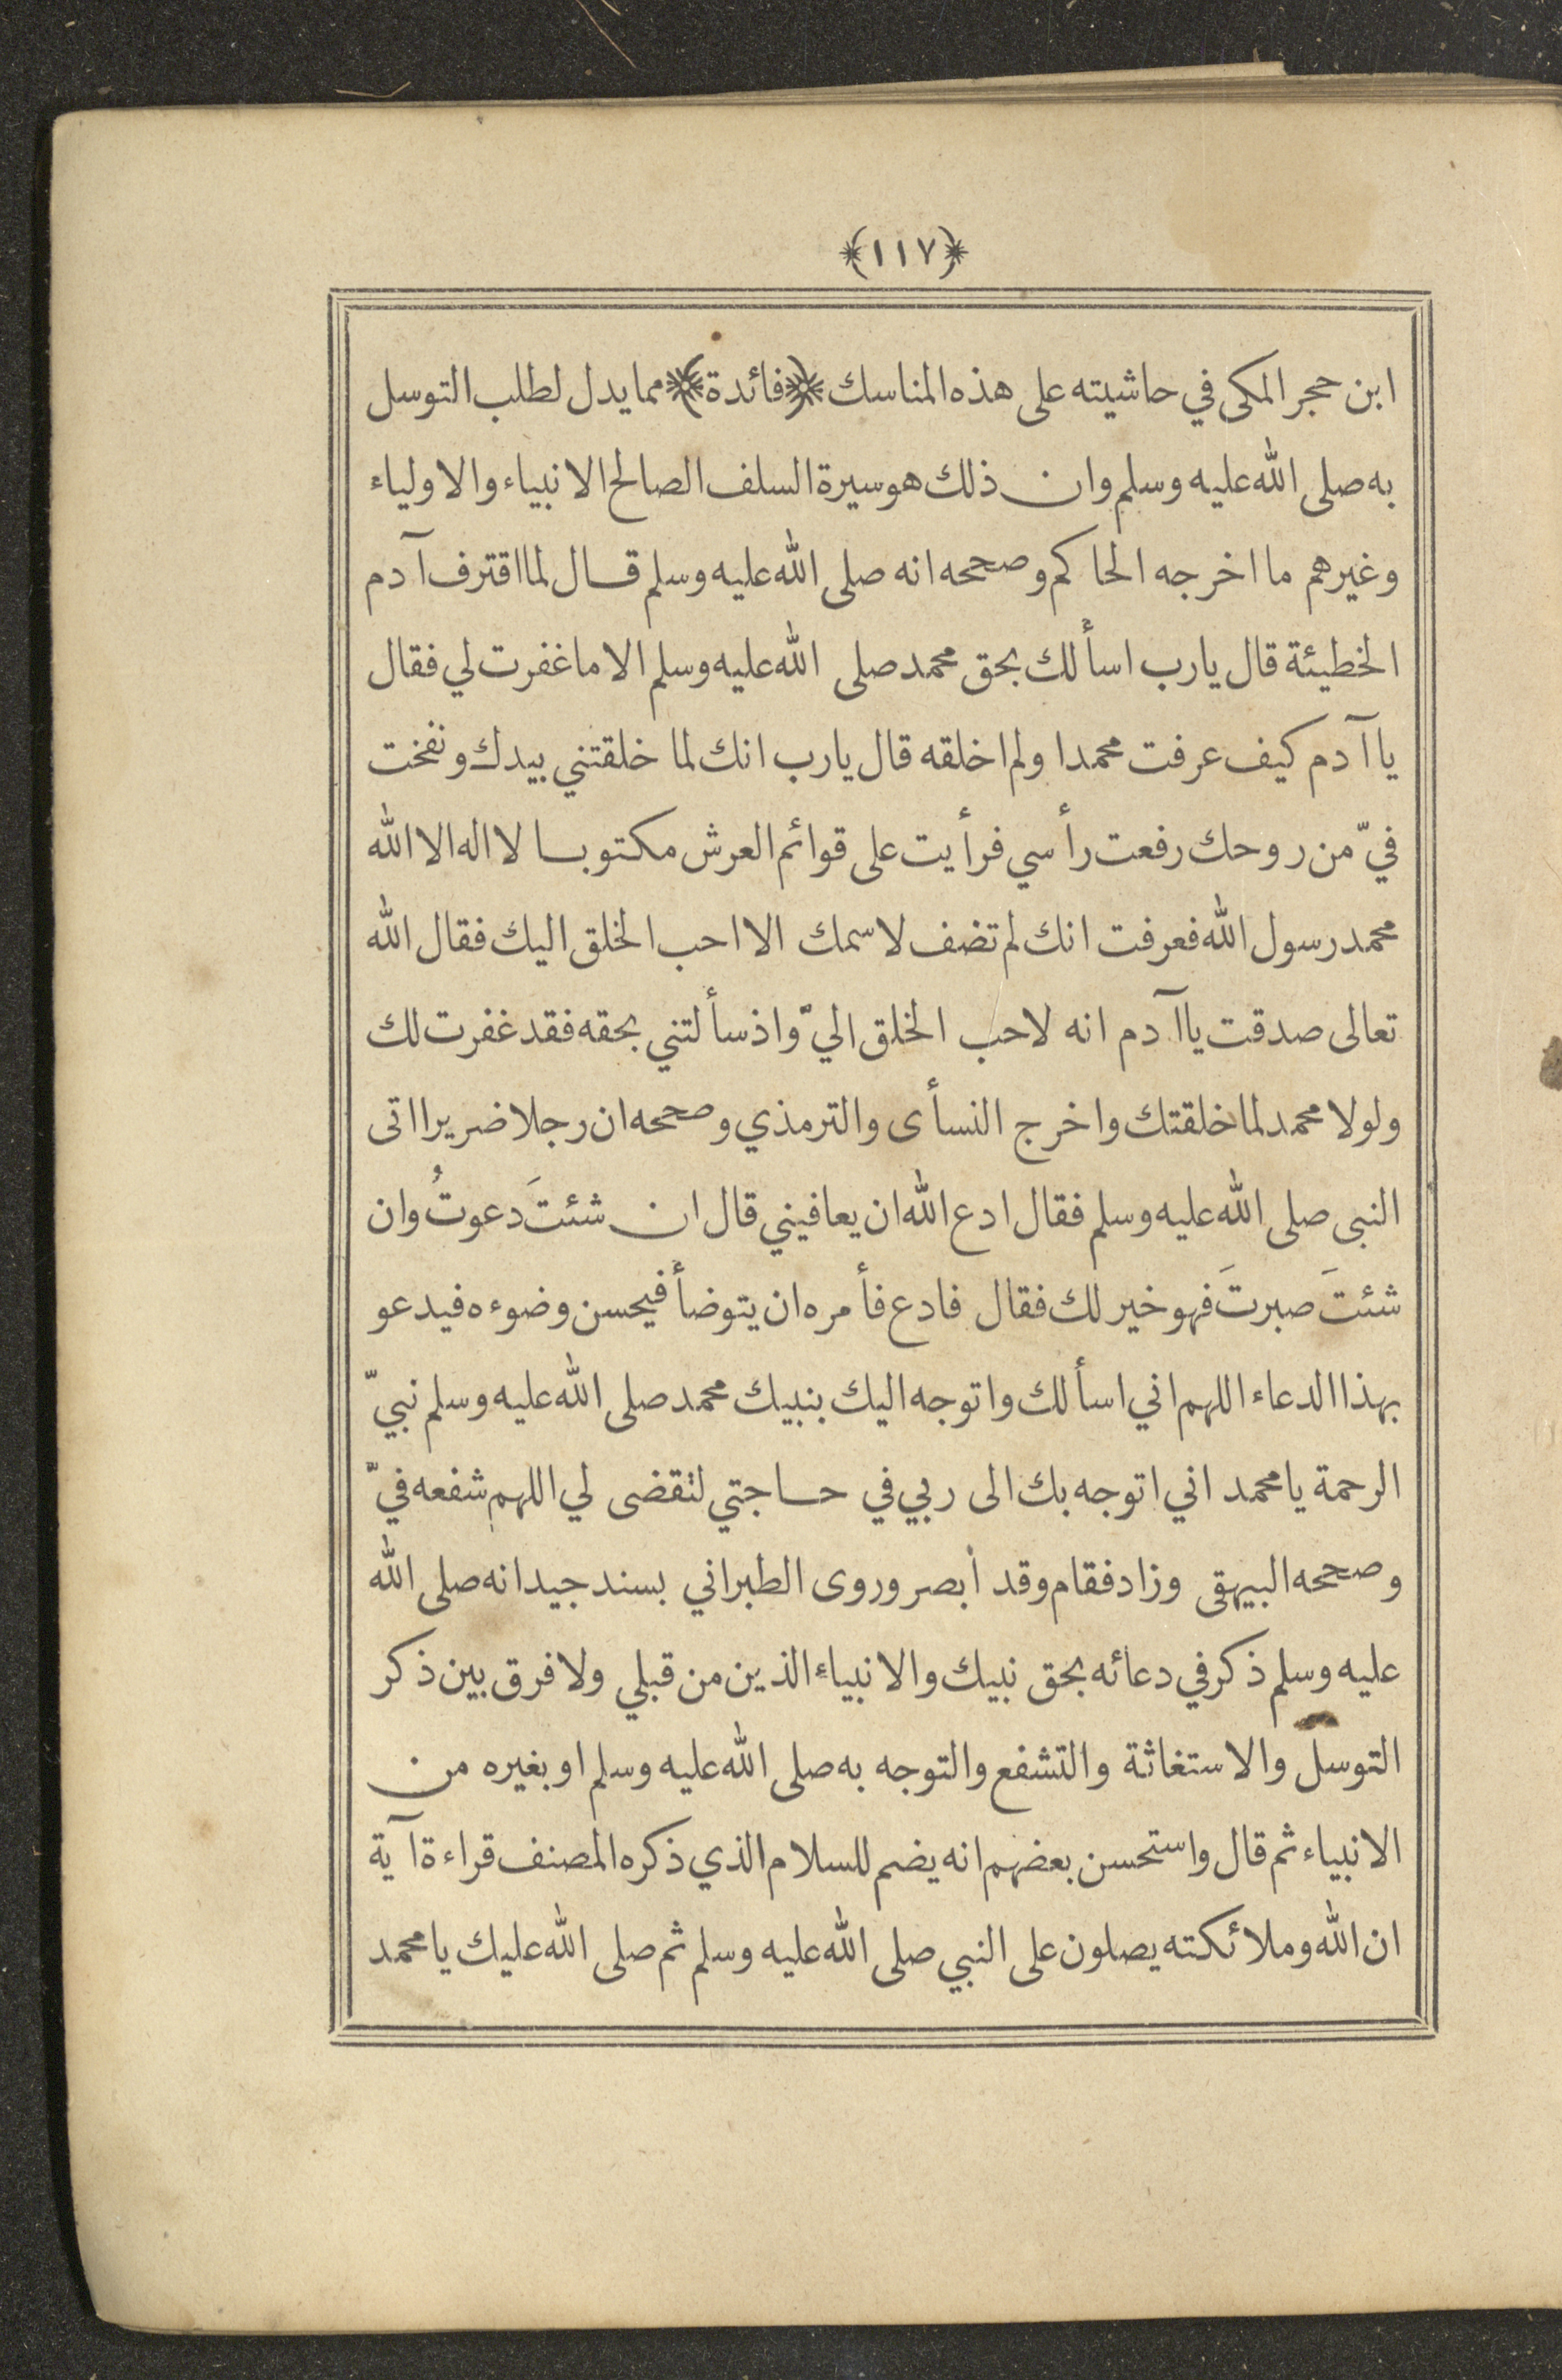 ﴿١١٧﴾
ابن حجر المكى في حاشيته على هذه المناسك ﴿فائدة﴾ مما يدل لطلب التوسل
به صلى الله عليه وسلم وان ذلك هو سيرة السلف الصالح الانبياء والاولياء
وغيرهم ما اخرجه الحاكم وصححه انه صلى الله عليه وسلم قال لما اقترف آدم
الخطيئة قال يارب اسألك بحق محمد صلى الله عليه وسلم الا ما غفرت لي فقال
ياآدم كيف عرفت محمدا ولم اخلقه قال يارب انك لما خلقتني بيدك ونفخت
فيّ من روحك رفعت رأسي فرأيت على قوائم العرش مكتوبا لا اله الا الله
محمد رسول الله فعرفت انك لم تضف لاسمك الا احب الخلق اليك فقال الله
تعالى صدقت ياآدم انه لاحب الخلق اليّ واذ سألتني بحقه فقد غفرت لك
ولولا محمد لما خلقتك واخرج النسأى والترمذي وصححه ان رجلا ضريرا اتى
النبى صلى الله عليه وسلم فقال ادع الله ان يعافيني قال ان شئتَ دعوتُ وان
شئتَ صبرتَ فهو خير لك فقال فادع فأمره ان يتوضأ فيحسن وضوءه فيدعو
بهذا الدعاء اللهم اني اسألك واتوجه اليك بنبيك محمد صلى الله عليه وسلم نبيّ
الرحمة يا محمد اني اتوجه بك الى ربي في حاجتي لتقضى لي اللهم شفعه فيّ
وصححه البيهقى وزاد فقام وقد أبصر وروى الطبراني بسند جيد انه صلى الله
عليه وسلم ذكر في دعائه بحق نبيك والانبياء الذين من قبلي ولا فرق بين ذكر
التوسل والاستغاثة والتشفع والتوجه به صلى الله عليه وسلم او بغيره من
الانبياء ثم قال واستحسن بعضهم انه يضم للسلام الذي ذكره المصنف قراءة آية
ان الله وملائكته يصلون على النبي صلى الله عليه وسلم ثم صلى الله عليك يا محمد